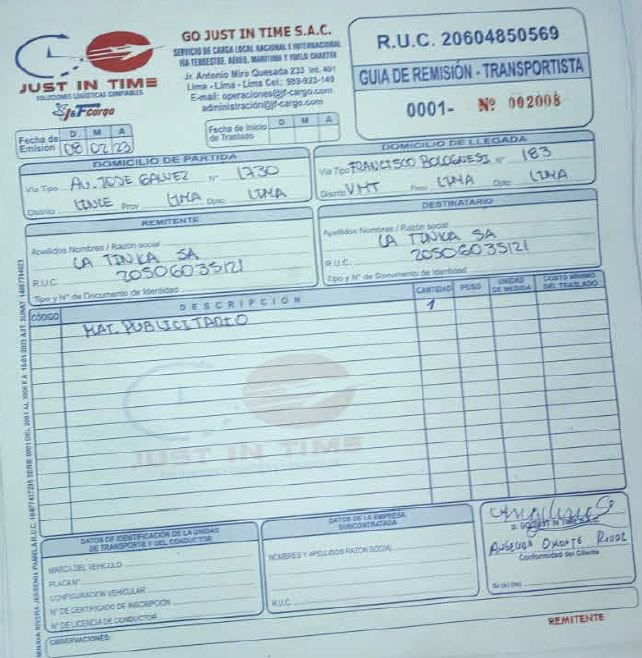 GO JUST IN TIME S.A.C.
SERVICIO DE CARGA LOCAL NACIONAL E INTERNACIONAL
VÍA TERRESTRE, AÉREO, MARITIMA Y VUELO CHARTER
Jr. Antonio Miro Quesada 233 Int. 401
Lima - Lima - Lima Cel.: 959-923-149
E-mail: operaciones@jf-cargo.com
administración@jf-cargo.com
JUST IN TIME
SOLUCIONES LOGÍSTICAS CONFIABLES
J&F Cargo
R.U.C. 20604850569
GUIA DE REMISIÓN - TRANSPORTISTA
0001- Nº 002008
Fecha de Emisión D M A
08 02 23
Fecha de Inicio de Traslado D M A
DOMICILIO DE PARTIDA
Vía Tipo AV. JOSE GALVEZ Nº 1730
Distrito LINCE Prov LIMA Dpto LIMA
DOMICILIO DE LLEGADA
Vía Tipo FRANCISCO BOLOGNESI Nº 183
Distrito VMT Prov LIMA Dpto LIMA
REMITENTE
Apellidos Nombres / Razón social
LA TINKA SA
R.U.C. 20506035121
Tipo y Nº de Documento de Identidad
DESTINATARIO
Apellidos Nombres / Razón social
LA TINKA SA
R.U.C. 20506035121
Tipo y Nº de Documento de Identidad
CÓDIGO DESCRIPCIÓN CANTIDAD PESO UNIDAD DE MEDIDA COSTO MÍNIMO DEL TRASLADO
MAT. PUBLICITARIO 1
JUST IN TIME
DATOS DE IDENTIFICACIÓN DE LA UNIDAD
DE TRANSPORTE Y DEL CONDUCTOR
MARCA DEL VEHICULO
PLACA Nº
CONFIGURACIÓN VEHICULAR
Nº DE CERTIFICADO DE INSCRIPCIÓN
Nº DE LICENCIA DE CONDUCTOR
DATOS DE LA EMPRESA
SUBCONTRATADA
NOMBRES Y APELLIDOS RAZÓN SOCIAL
R.U.C.
Conformidad del Cliente
Sr.(a)(ta)
OBSERVACIONES:
REMITENTE